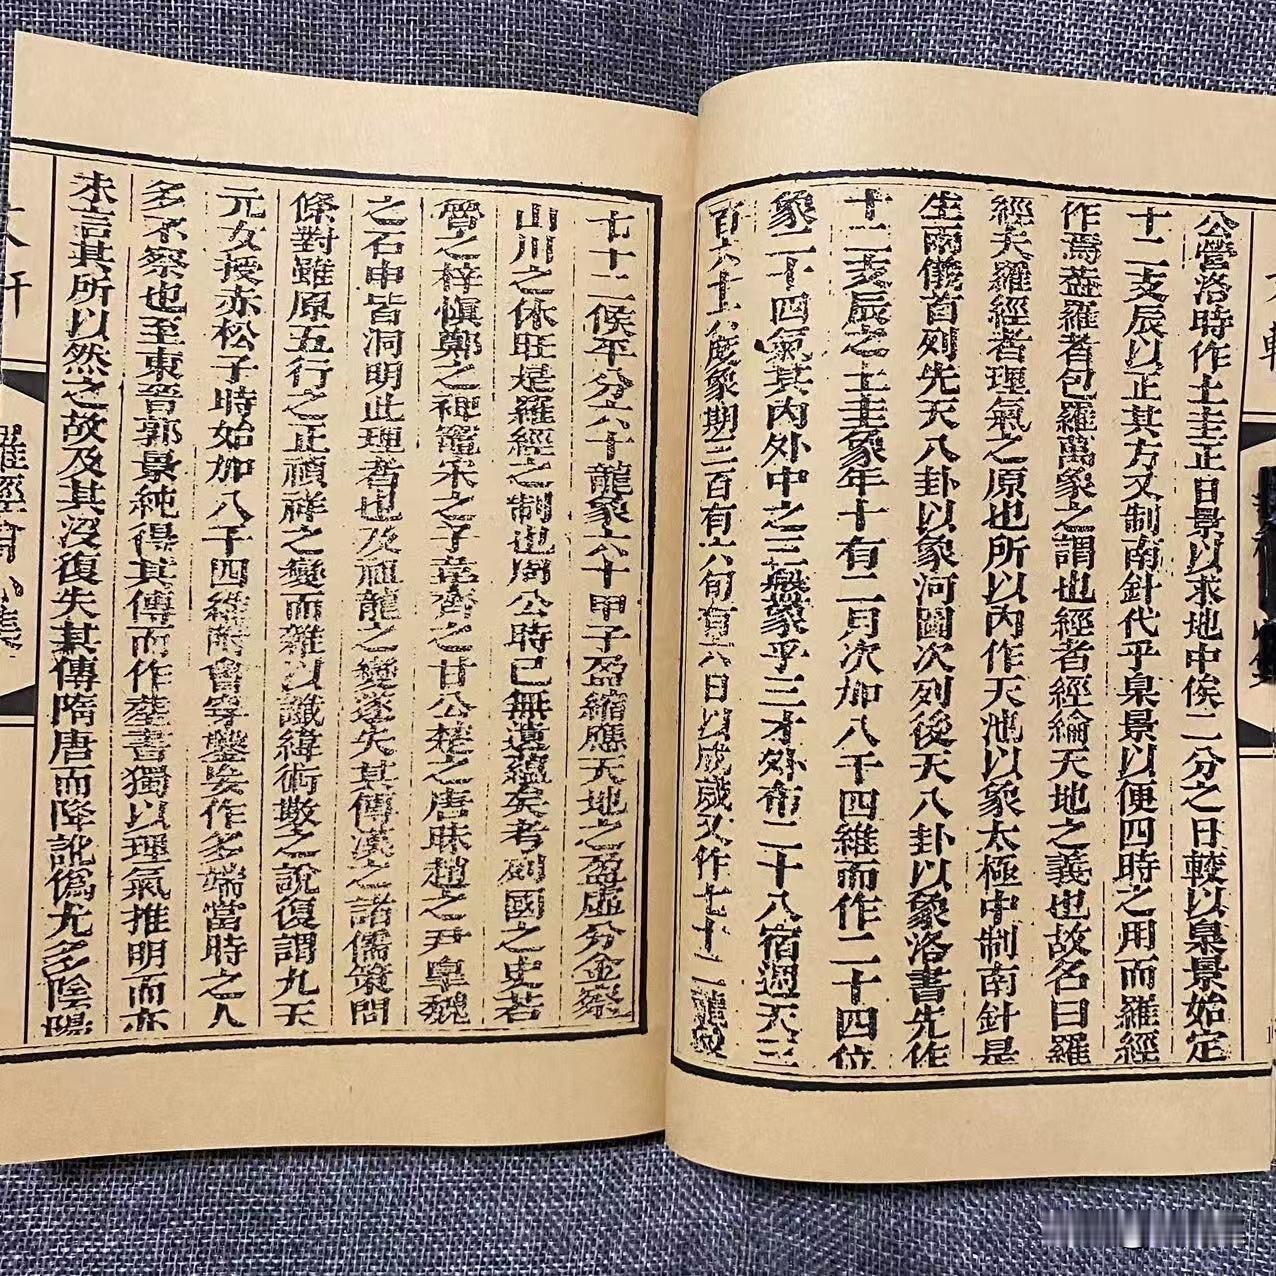 公營洛時作土圭正日景以求地中俟二分之日較以臬景始定
十二支辰以正其方又制南針代乎臬景以便四時之用而羅經
作焉葢羅者包羅萬象之謂也經者經綸天地之義也故名曰羅
經夫羅經者理氣之原也所以內作天池以象太極中制南針是
生兩儀首列先天八卦以象河圖次列後天八卦以象洛書先作
十二支辰之土圭象年十有二月次加八干四維而作二十四位
象二十四氣其內外中之三盤象乎三才外布二十八宿週天三
百六十六度象期三百有六旬有六日以成歲又作七十二龍
七十二候平分六十龍象六十甲子盈縮應天地之盈虛分金察
山川之休旺是羅經之制也周公時已無遺蘊矣考列國之史若
晉之梓慎鄭之裨竈宋之子韋齊之甘公楚之唐昧趙之尹皐魏
之石申皆洞明此理者也及祖龍之變遂失其傳漢之諸儒策問
條對雖原五行之正禎祥之變而雜以讖緯術數之說復謂九天
元女授赤松子時始加八干四維附會穿鑿妄作多端當時之人
多不察也至東晉郭景純得其傳而作葬書獨以理氣推明而亦
未言其所以然之故及其沒復失其傳隋唐而降訛僞尤多陰陽